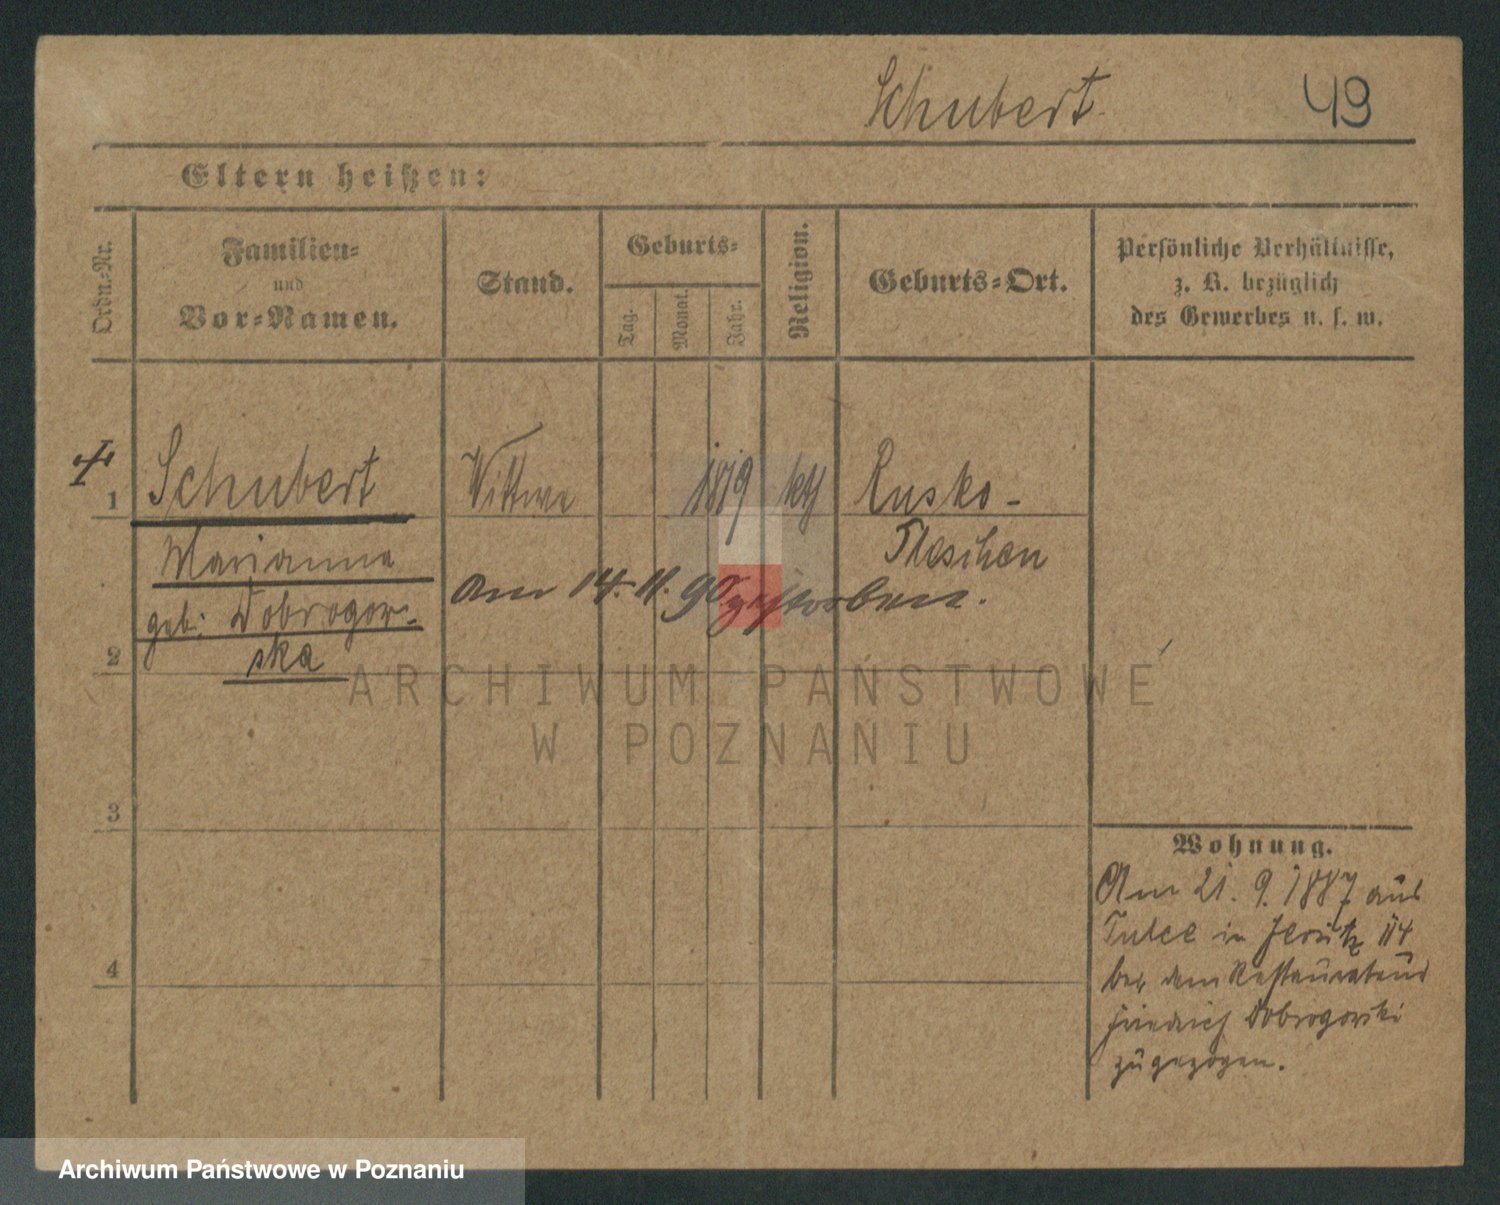 Schubert.
49
Eltern heißen:
Ordn.-Nr.
Familien-
und
Vor-Namen.
Stand.
Geburts-
Tag.
Monat.
Jahr.
Religion.
Geburts-Ort.
Persönliche Verhältnisse,
z. B. bezüglich
des Gewerbes u. s. w.
1
Schubert
Wittwe
1819
kth
Rusko-
Marianna
Pleschen
geb: Dobrogor-
ska
am 14. 11. 90 gestorben.
2
3
4
Wohnung.
Am 21. 9. 1887 aus
Tulce in Jersitz 114
bei dem Restaurateur
Friedrich Dobrogorski
zugezogen.
ARCHIWUM PAŃSTWOWE
W POZNANIU
Archiwum Państwowe w Poznaniu